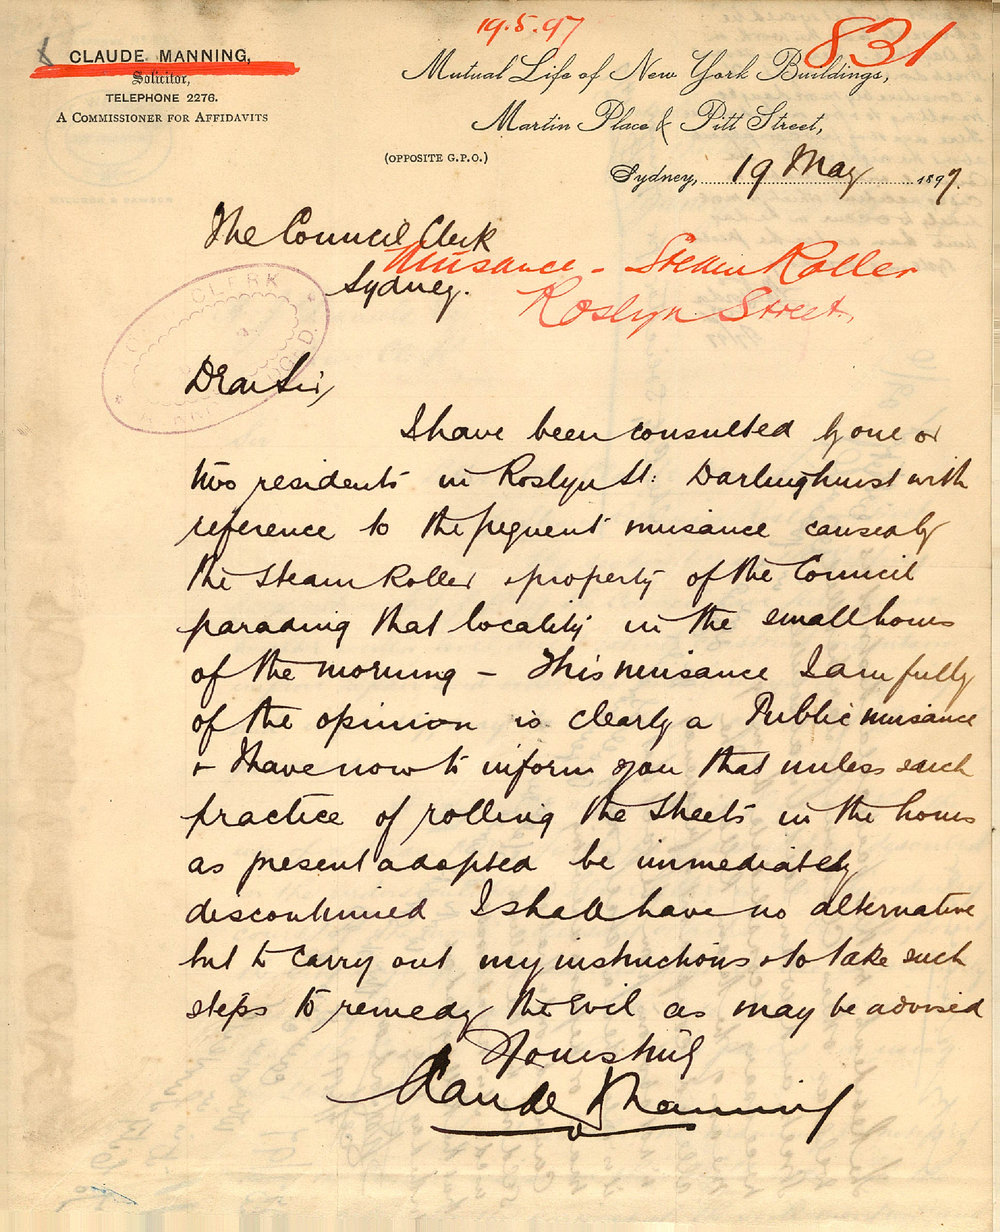 19.5.97
831
CLAUDE MANNING,
Solicitor,
TELEPHONE 2276.
A COMMISSIONER FOR AFFIDAVITS
Mutual Life of New York Buildings,
Martin Place & Pitt Street,
(OPPOSITE G.P.O.)
Sydney, 19 May 1897.
The Council Clerk
Sydney.
Nuisance - Steam Roller
Roslyn Street.
CLERK
Dear Sir,
I have been consulted by one or
two residents in Roslyn St: Darlinghurst with
reference to the frequent nuisance caused by
the Steam Roller property of the Council
parading that locality in the small hours
of the morning – This nuisance I am fully
of the opinion is clearly a Public nuisance
+ I have now to inform you that unless such
practice of rolling the streets in the hours
as present adopted be immediately
discontinued I shall have no alternative
but to carry out my instructions & to take such
steps to remedy the Evil as may be advised
Yours truly
Claude Manning